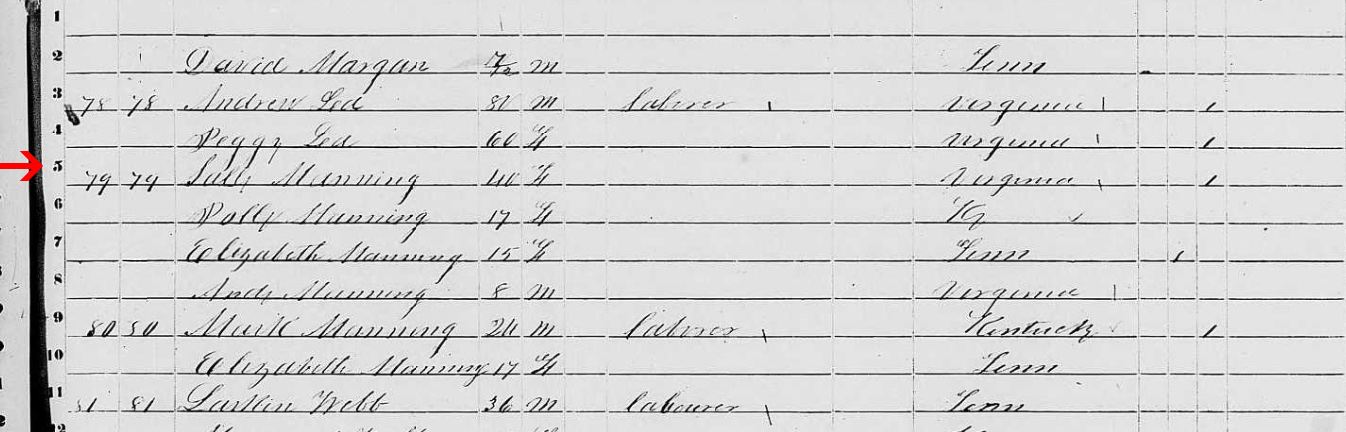 1
2 David Margan 7/12 m Tenn
3 78 78 Andrew Led 80 m laborer Virginia 1
4 Peggy Led 60 F Virginia 1
5 79 79 Sally Manning 40 F Virginia 1
6 Polly Manning 17 F Ky
7 Elizabeth Manning 15 F Tenn 1
8 Andy Manning 8 m Virginia
9 80 80 Mark Manning 24 m laborer Kentucky 1
10 Elizabeth Manning 17 F Tenn
11 81 81 Larkin Webb 36 m labourer Tenn
12